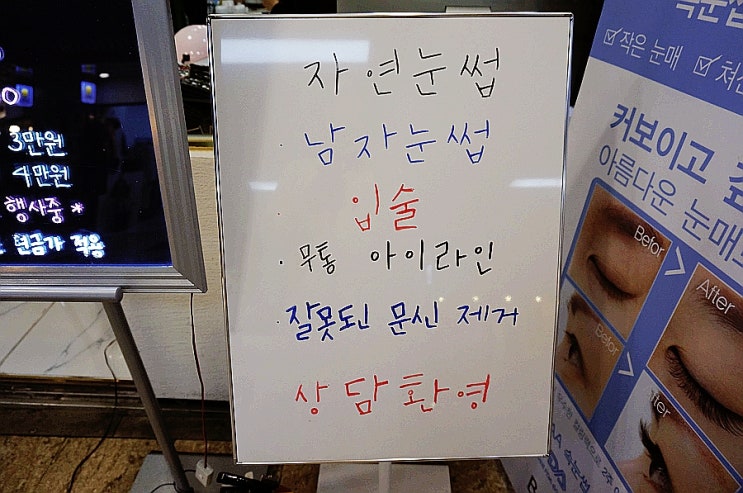 3만원
4만원
행사중 *
현금가 적용
자연눈썹
· 남자눈썹
· 입술
· 무통 아이라인
· 잘못된 문신 제거
상담환영
☑ 작은 눈매
☑
커보이고
아름다운 눈매
Befor
After
Befor
After
속눈썹